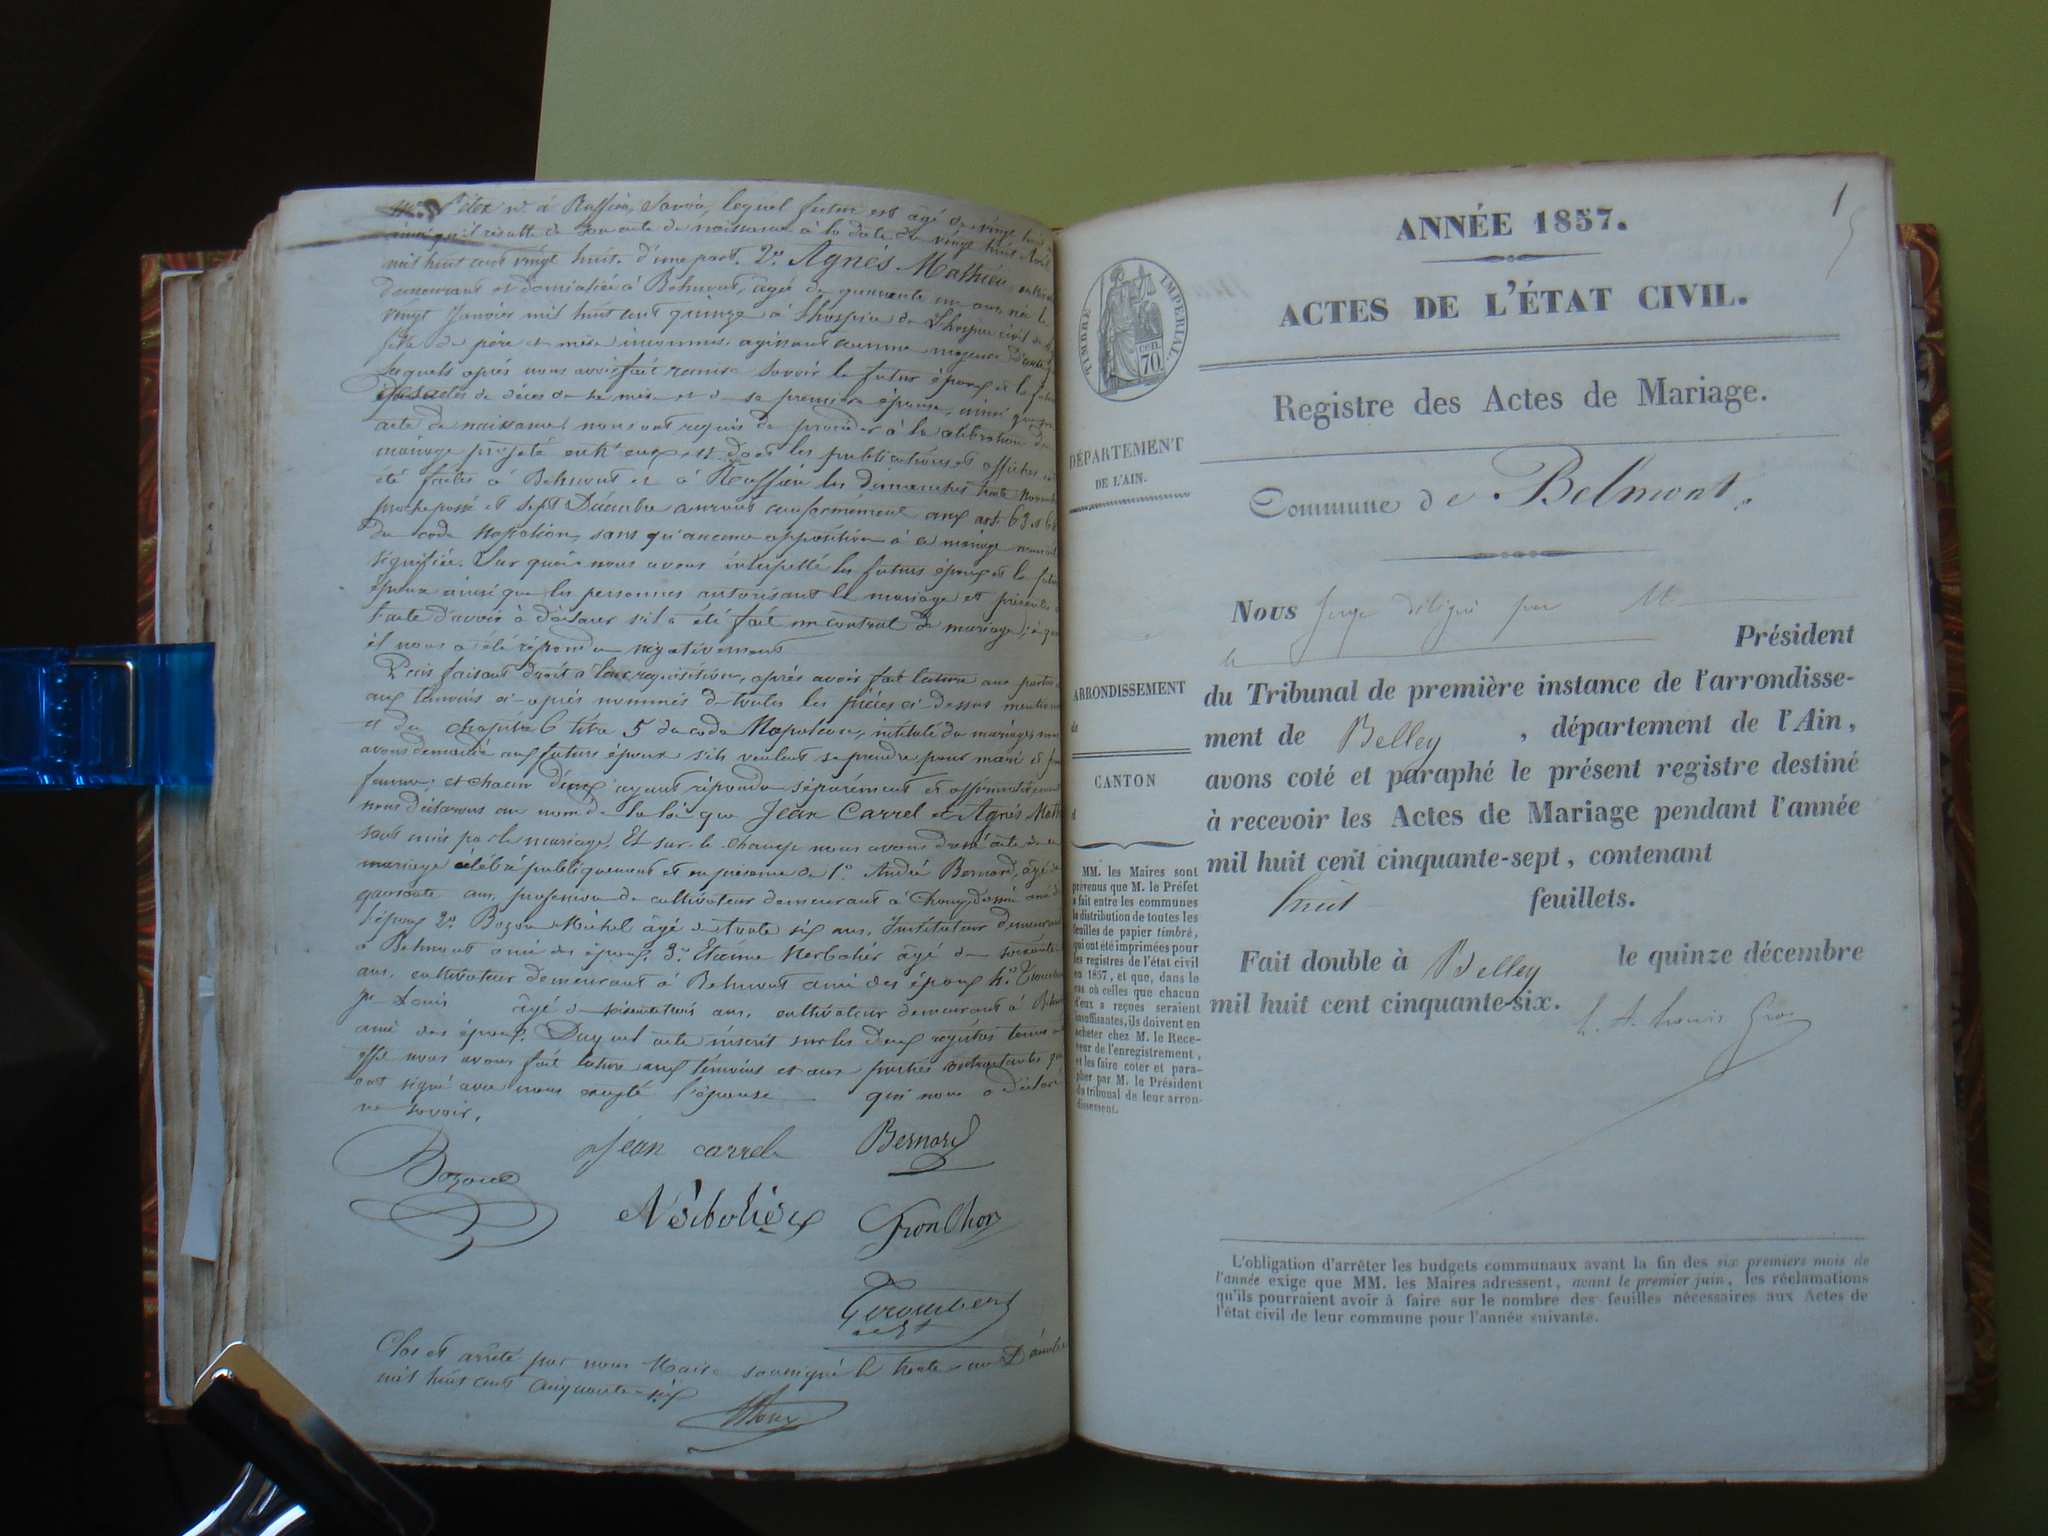 à Ruffieu, Savoie, lequel futur est âgé de vingt huit
ainsi qu'il résulte de son acte de naissance à la date du vingt huit Avril
mil huit cent vingt huit. d'une part. 2° Agnés Mathieu
demeurant et domiciliée à Belmont, âgée de quarante un ans née le
vingt Janvier mil huit cent quinze à l'hospice de l'hospice civil de
fille de père et mère inconnus. agissant comme majeure
Lesquels après nous avoir fait remise savoir le futur époux et la future
actes de décès de sa mère et de sa première épouse, ainsi que
acte de naissance nous ont requis de procéder à la célébration du
mariage projeté entr'eux et dont les publications et affiches ont
été faites à Belmont et à Ruffieu les dimanches trente Novembre
proche passé et sept Décembre courant conformément aux art. 63 et 64
du code Napoléon, sans qu'aucune opposition à ce mariage nous ait
signifiée. Sur quoi nous avons interpellé les futurs époux et la future
épouse ainsi que les personnes autorisant le mariage et présentes à
l'acte d'avoir à déclarer s'il a été fait un contrat de mariage; à quoi
il nous a été répondu négativement
Puis faisant droit à leur requisition, après avoir fait lecture aux parties
aux témoins ci-après nommés de toutes les pièces ci-dessus mentionnées
et du chapitre 6 titre 5 du code Napoléon, intitulé du mariage, nous
avons demandé aux futurs époux s'ils veulent se prendre pour mari et pour
femme; et chacun d'eux ayant répondu séparément et affirmativement
nous déclarons au nom de la loi que Jean Carrel et Agnés Math
sont unis par le mariage. Et sur le champ nous avons dressé acte de ce
mariage célébré publiquement et en présence de 1° André Bernard, âgé de
quarante ans, profession de cultivateur demeurant à ami de
l'époux 2° Bozon Michel âgé de trente six ans, Instituteur demeurant
à Belmont ami des époux. 3° Etienne Nerbolier âgé de soixante
ans, cultivateur demeurant à Belmont ami des époux 4° Tronchon
Jn Louis âgé de ans, cultivateur demeurant à Belmont
ami des époux. Duquel acte inscrit sur les deux registres tenus à cet
effet nous avons fait lecture aux témoins et aux parties contractantes qui
ont signé avec nous excepté l'épouse qui nous a déclaré
ne savoir.
Jean carrel Bernard
Bozon
Nerbolier Tronchon
Clos et arrêté par nous Maire soussigné le trente un Décembre
mil huit cent cinquante six
1
ANNÉE 1857.
ACTES DE L'ÉTAT CIVIL.
TIMBRE IMPÉRIAL.
CENT. 70
Registre des Actes de Mariage.
DÉPARTEMENT
DE L'AIN.
Commune de Belmont.
Nous Juge délégué par M
le Président
ARRONDISSEMENT
de
du Tribunal de première instance de l'arrondisse-
ment de Belley, département de l'Ain,
CANTON
d
avons coté et paraphé le présent registre destiné
à recevoir les Actes de Mariage pendant l'année
mil huit cent cinquante-sept, contenant
huit feuillets.
Fait double à Belley le quinze décembre
mil huit cent cinquante-six.
MM. les Maires sont
prévenus que M. le Préfet
a fait entre les communes
la distribution de toutes les
feuilles de papier timbré,
qui ont été imprimées pour
les registres de l'état civil
en 1857, et que, dans le
cas où celles que chacun
d'eux a reçues seraient
insuffisantes, ils doivent en
acheter chez M. le Rece-
veur de l'enregistrement,
et les faire coter et para-
pher par M. le Président
du tribunal de leur arron-
dissement.
L'obligation d'arrêter les budgets communaux avant la fin des six premiers mois de
l'année exige que MM. les Maires adressent, avant le premier juin, les réclamations
qu'ils pourraient avoir à faire sur le nombre des feuilles nécessaires aux Actes de
l'état civil de leur commune pour l'année suivante.